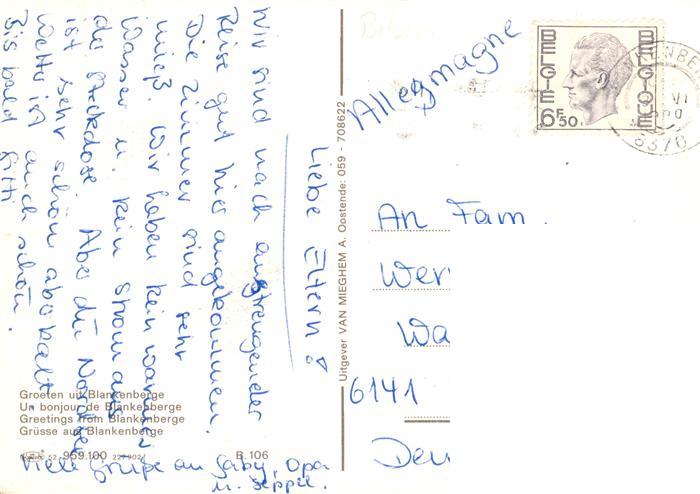 Liebe Eltern!
Wir sind nach anstrengender
Reise gut hier angekommen.
Die Zimmer sind sehr
mieß. Wir haben kein warmes
Wasser u. kein Strom aus
der Steckdose. Aber die Nordsee
ist sehr schön aber kalt
Wetter ist auch schön.
Bis bald Gitti
Viele Grüße an Gaby, Opa
u. Seppel.
Groeten uit Blankenberge
Un bonjour de Blankenberge
Greetings from Blankenberge
Grüsse aus Blankenberge
52 959.100
B.106
Uitgever VAN MIEGHEM A. Oostende: 059 - 708622
Allegmagne
BELGIE BELGIQUE
6F50
8370
An Fam.
Wer
Wa
6141
Deu